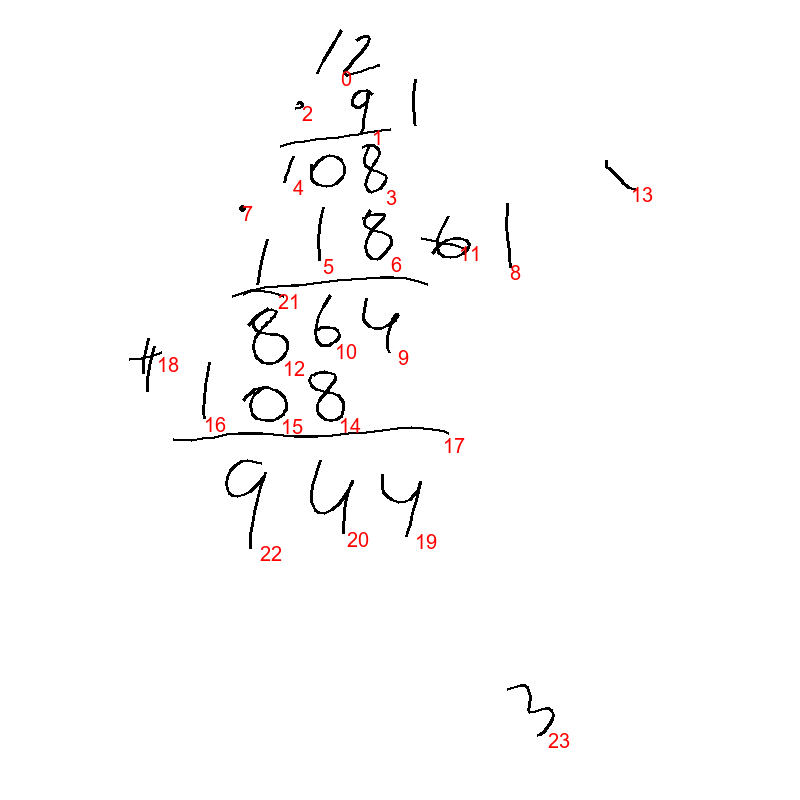 12
0
. 9 1
2 1
1 0 8
4 3
13
7
1 1 8 6 1
5 6 11 8
21
8 6 4
12 10 9
18
1 0 8
16 15 14
17
9 4 4
22 20 19
3
23